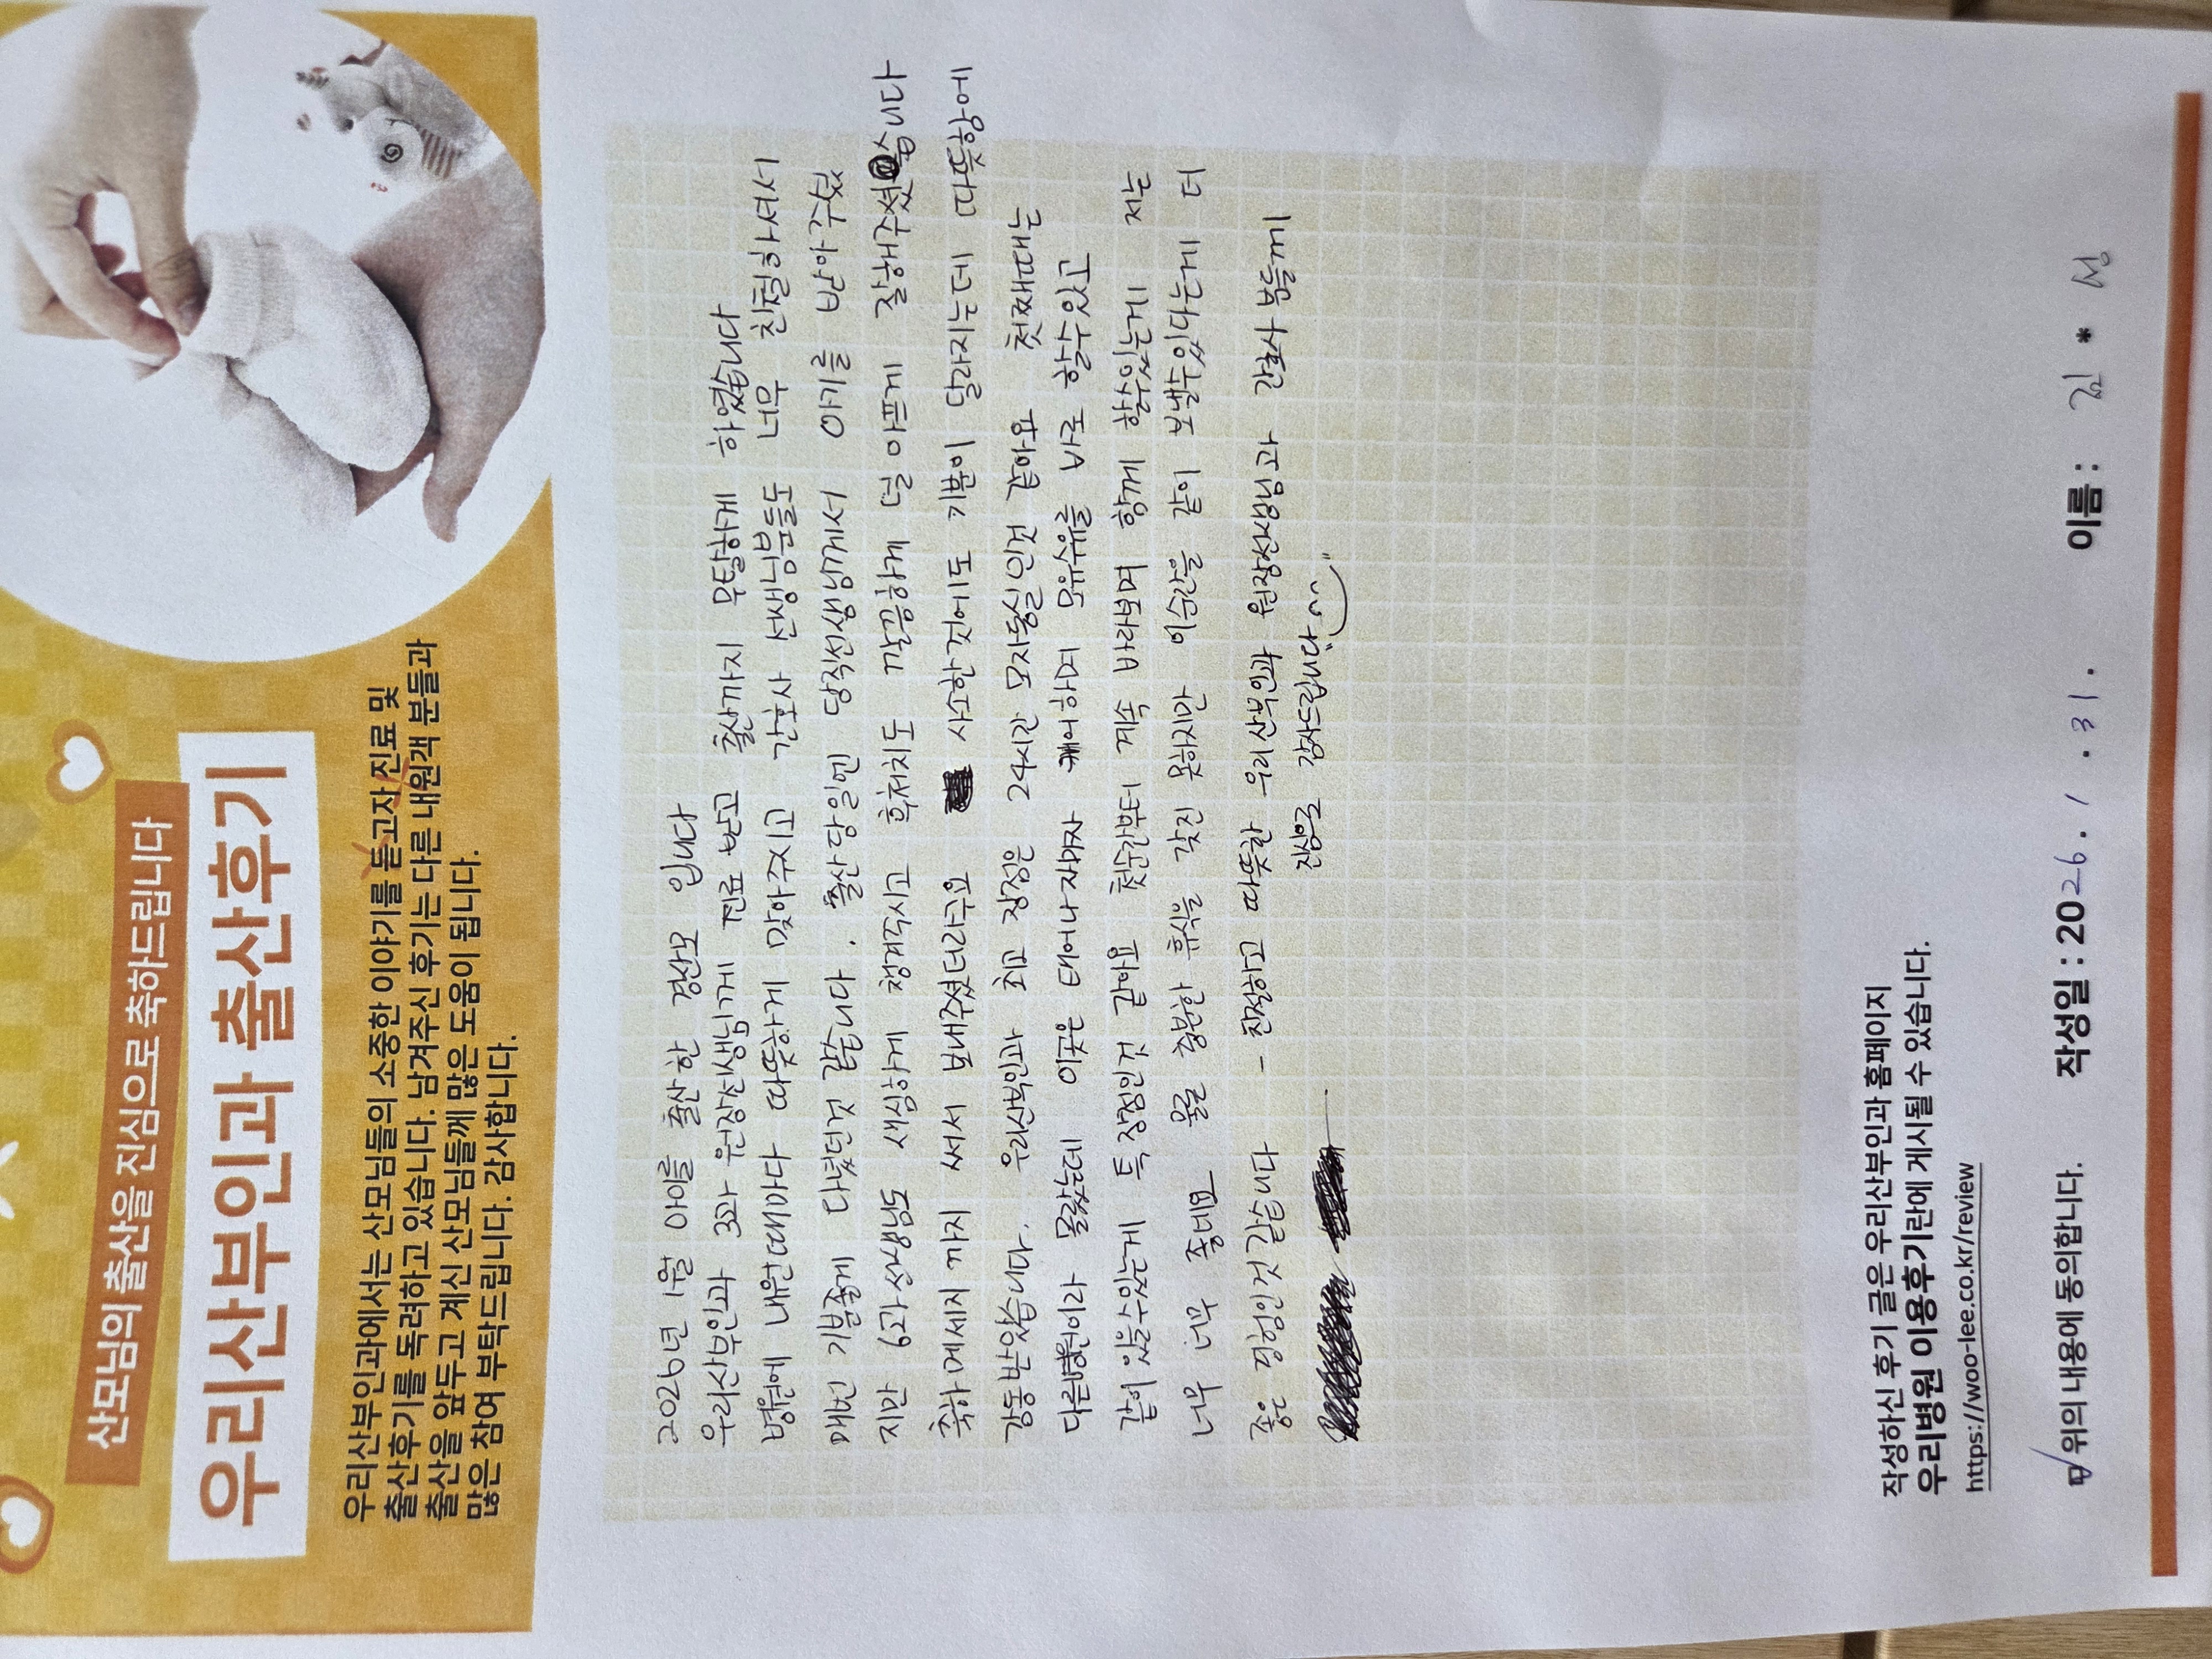 산모님의 출산을 진심으로 축하드립니다
우리산부인과 출산후기
우리산부인과에서는 산모님들의 소중한 이야기를 듣고자 진료 및
출산후기를 독려하고 있습니다. 남겨주신 후기는 다른 내원객 분들과
출산을 앞두고 계신 산모님들께 많은 도움이 됩니다.
많은 참여 부탁드립니다. 감사합니다.
2026년 1월 아이를 출산한 경산모 입니다
우리산부인과 3과 원장선생님께 진료 받고 출산까지 무탈하게 하였습니다
병원에 내원때마다 따뜻하게 맞아주시고 간호사 선생님분들도 너무 친절하셔서
매번 기분좋게 다녔던것 같습니다. 출산당일엔 당직선생님께서 아기를 받아주셨
지만 6과선생님도 새심하게 챙겨주시고 후처치도 깔끔하게 덜아프게 잘해주셨습니다
축하메세지 까지 써서 보내주셨더라구요 사소한것에도 기분이 달라지는데 따뜻함에
감동받았습니다. 우리산부인과 최고 장점은 24시간 모자동실인것 같아요 첫째때는
다른병원이라 몰랐는데 이곳은 태어나자마자 케어하며 모유수유를 바로 할수있고
같이 있을수있는게 특장점인것 같아요 첫순간부터 계속 바라보며 함께 할수있는게 저는
너무 너무 좋네요 물론 충분한 휴식을 갖진 못하지만 이순간을 같이 보낼수있다는게 더
좋은 경험인것 같습니다 - 친절하고 따뜻한 우리산부인과 원장선생님과 간호사 분들께
진심으로 감사드립니다
작성하신 후기 글은 우리산부인과 홈페이지
우리병원 이용후기란에 게시될 수 있습니다.
https://woo-lee.co.kr/review
위의 내용에 동의합니다. 작성일 : 2026. 1. 31. 이름 : 김 * 성